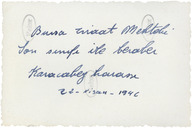 Bursa ziraat Mektebi
Son sınıfı ile beraber
Karacabey harası
22-Nisan-1946